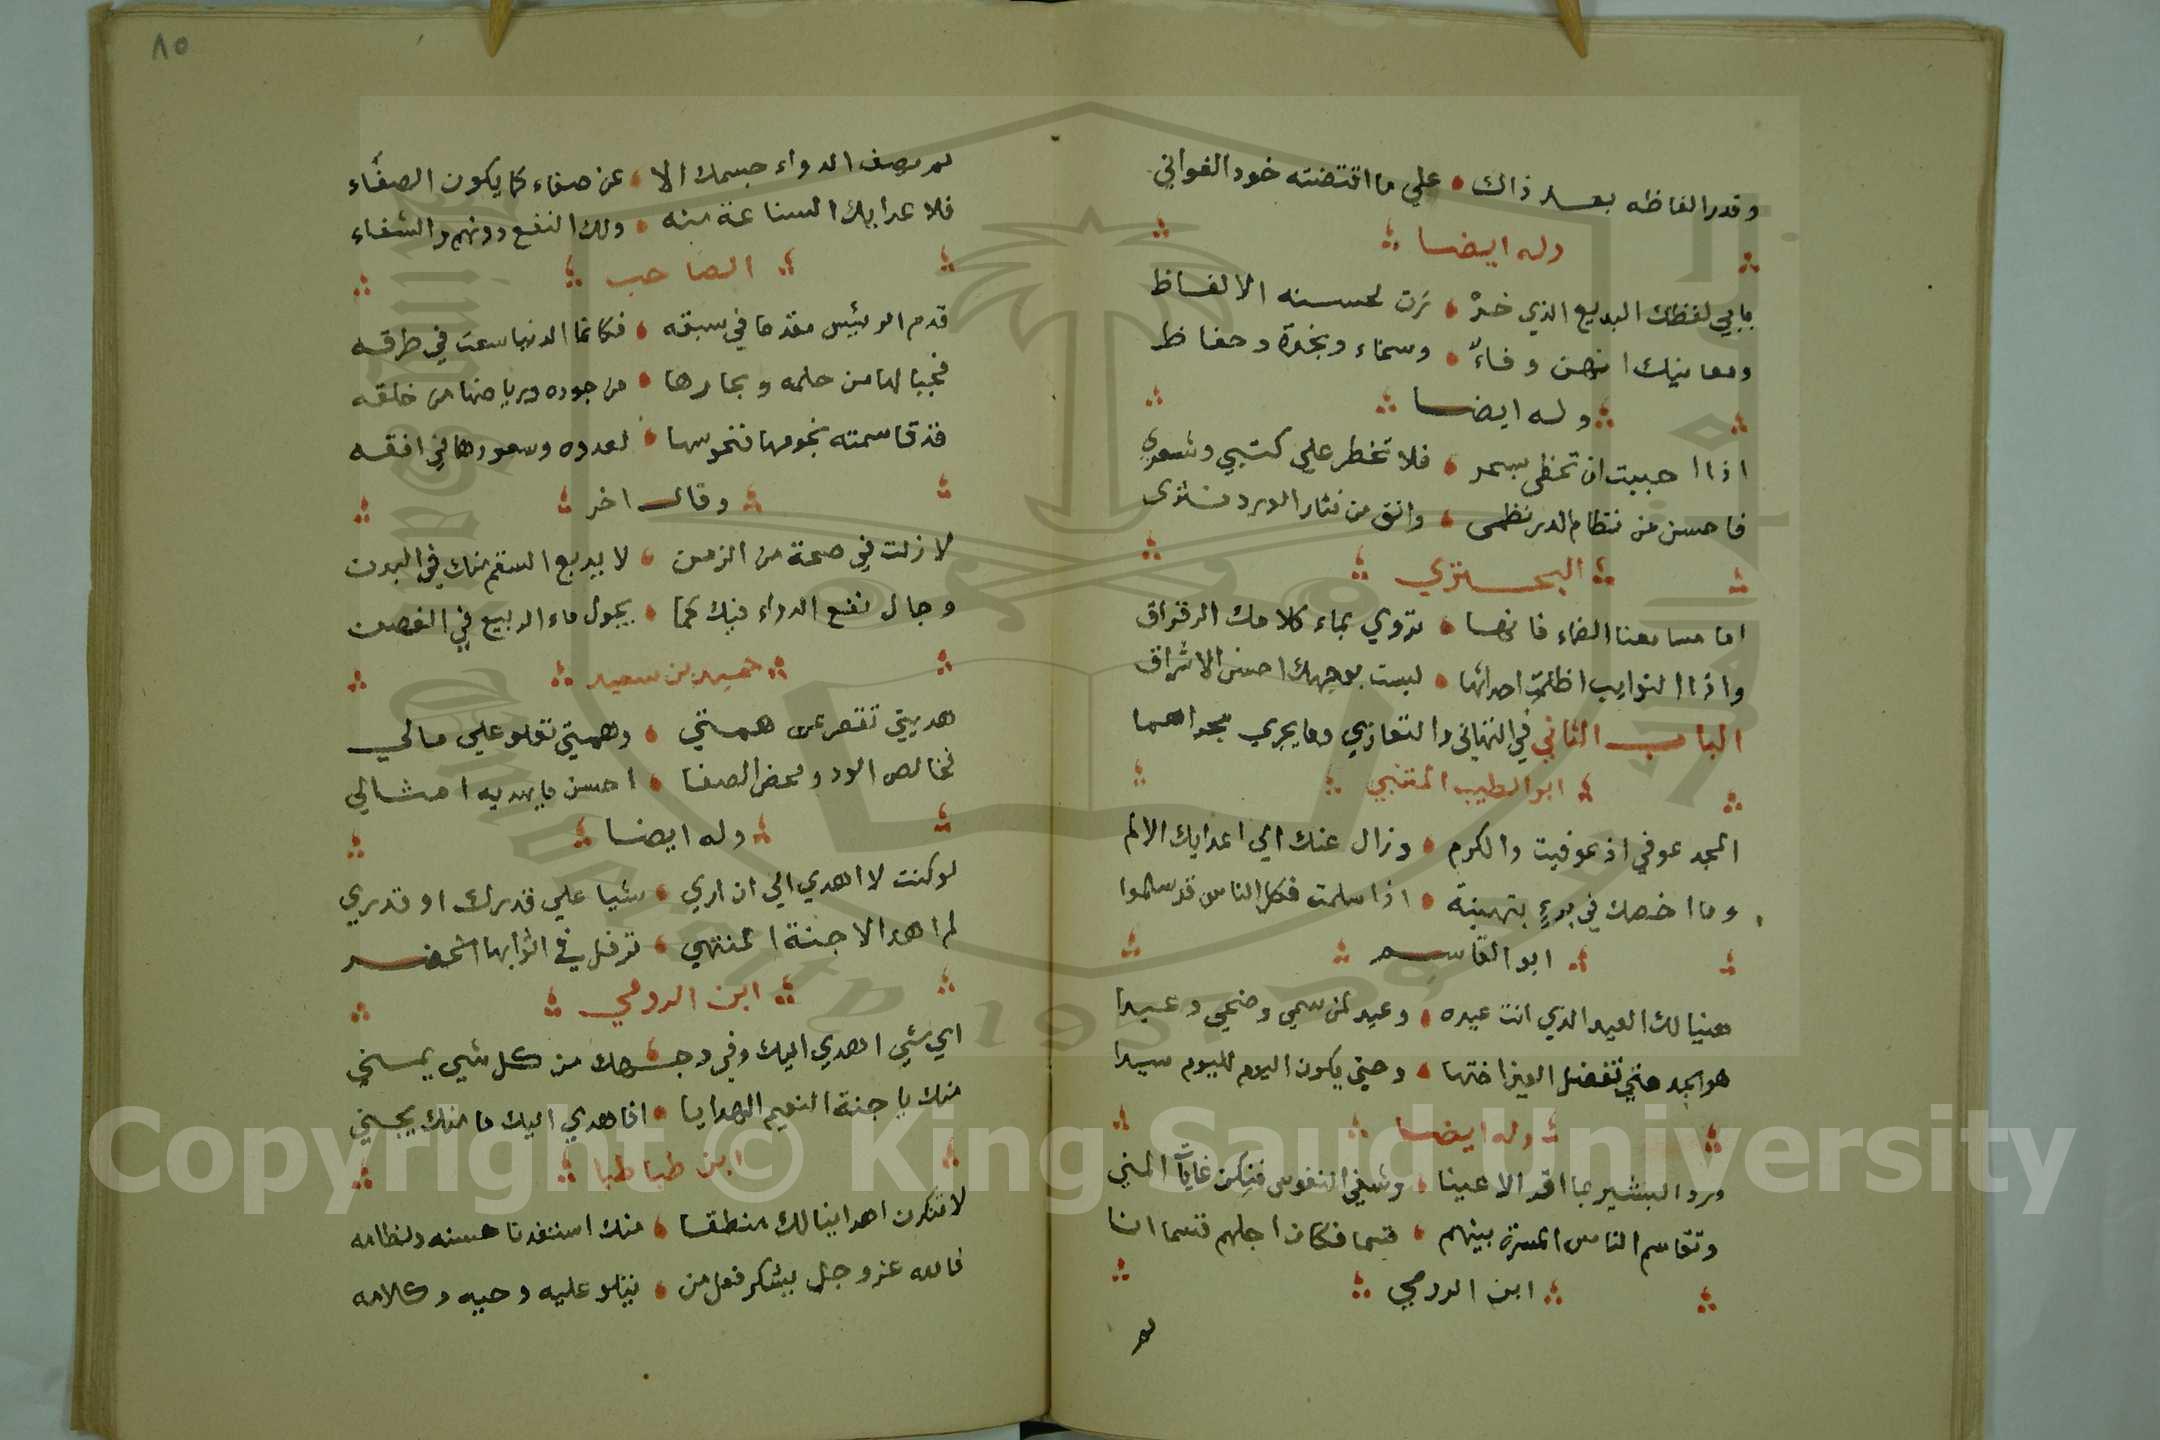 وقدر الفاظه بعد ذاك على ما اقتضته خود الغواني
وله ايضا
بابي لفظك البديع الذي خرّ ت لحسنه الالفاظ
ومعانيك انهن وفاء وسخاء ونجدة وحفاظ
وله ايضا
اذا احببت ان تحظى بسحر فلا تخطر على كتبي وشعري
فاحسن من نتظام الدر نظمى وانق من نثار الورد نثرى
البحتري
اما مسامعنا الضماء فانها تروي بماء كلامك الرقراق
واذا النوايب اظلمت احداثها لبست بوجهك احسن الاشراق
الباب الثاني في التهاني والتعازي وما يجري مجراهما
ابو الطيب المتنبي
المجد عوفي اذ عوفيت والكرم وزال عنك الي اعدايك الالم
وما اخصك في برءٍ بتهنية اذا سلمت فكل الناس قد سلموا
ابو القاسم
هنيا لك العيد الذي انت عيده وعيد لمن سمي وضحي وعيدا
هو الجد حتي تفضل العين اختها وحتي يكون اليوم لليوم سيدا
وله ايضا
ورد البشير بما اقر الاعينا وشفي النفوس فنلن غايات المني
وتقاسم الناس المسرة بينهم قسما فكان اجلهم قسما انا
ابن الرومي
لم
٨٥
لم يصف الدواء جسمك الا عن صفاء كما يكون الصفاء
فلا عدايك السناعة منه ولك النفع دونهم والشفاء
الصاحب
قدم الرئيس مقدما في سبقه فكانما الدنيا سعت في طرقه
فجبالها من حلمه وبحارها من جوده ورياضها من خلقه
قد قاسمته نجومها فنحوسها لعدوه وسعودها في افقه
وقال اخر
لا زلت في صحة من الزمن لا يربع السقم منك في البدن
وجال نفع الدواء فيك كما يجول ماء الربيع في الغصن
حميد بن سعيد
هديتي تقصر عن همتي وهمتي تعلو علي مالي
فخالص الود ومحض الصفا احسن ما يهديه امثالي
وله ايضا
لو كنت لا اهدي الي ان اري شيا علي قدرك او قدري
لم اهد الا جنة المنتهي ترفل في اثوابها الخضر
ابن الرومي
اي شي اهدي اليك وفي وجهك من كل شي يمسني
منك يا جنة النعيم الهدايا افاهدي اليك ما منك يجني
ابن طباطبا
لا تنكرن اهداينا لك منطقا منك استفدنا حسنه ونظامه
فالله عز وجل يشكر فعل من يتلو عليه وحيه وكلامه
Copyright © King Saud University